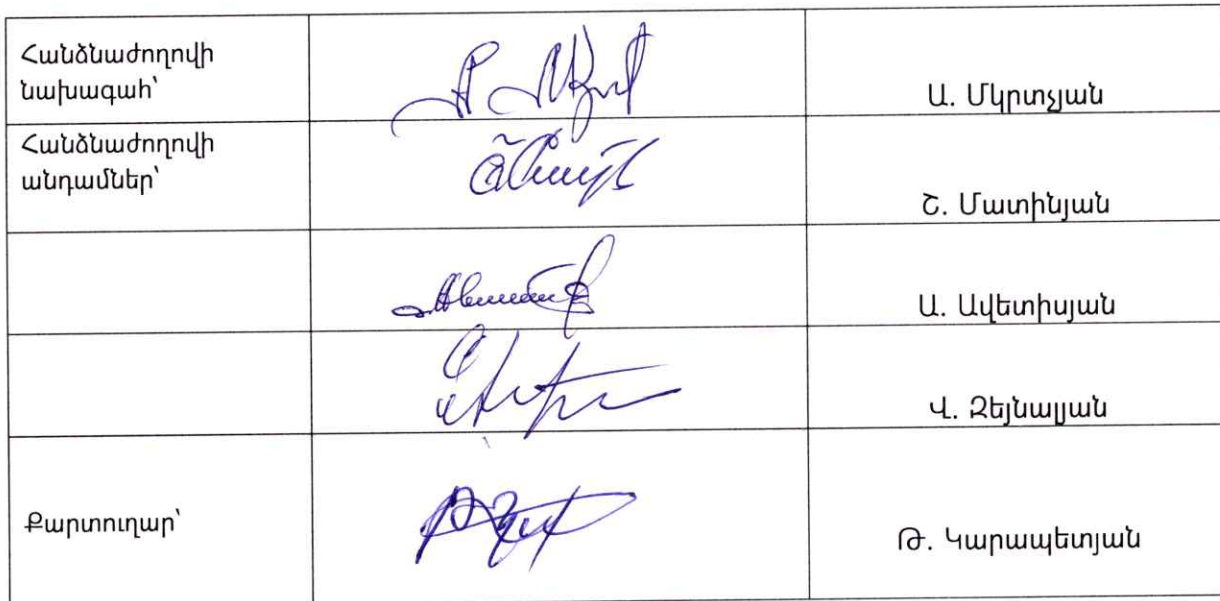 Հանձնաժողովի
նախագահ՝
Ա. Մկրտչյան
Հանձնաժողովի
անդամներ՝
Շ. Մատինյան
Ա. Ավետիսյան
Վ. Զեյնալյան
Քարտուղար՝
Թ. Կարապետյան